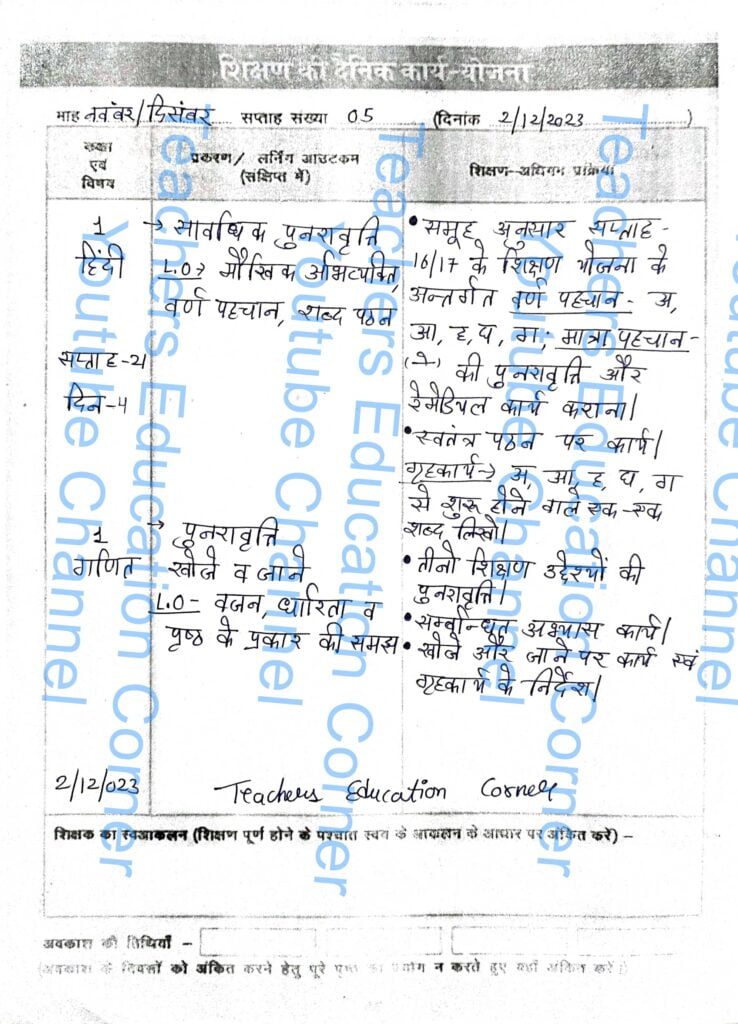 शिक्षण की दैनिक कार्य-योजना
माह नवंबर/दिसंबर सप्ताह संख्या 05 (दिनांक 2/12/2023)
कक्षा एवं विषय
प्रकरण/ लर्निंग आउटकम (संक्षिप्त में)
शिक्षण-अधिगम प्रक्रिया
1
हिंदी
सप्ताह-21
दिन-4
→ सावधिक पुनरावृत्ति
L.O→ मौखिक अभिव्यक्ति,
वर्ण पहचान, शब्द पठन
• समूह अनुसार सप्ताह-
16/17 के शिक्षण योजना के
अन्तर्गत वर्ण पहचान- अ,
आ, ह, य, ग; मात्रा पहचान-
( े ) की पुनरावृत्ति और
रेमेडियल कार्य कराना।
• स्वतंत्र पठन पर कार्य।
गृहकार्य→ अ, आ, ह, य, ग
से शुरू होने वाले एक-एक
शब्द लिखो।
1
गणित
→ पुनरावृत्ति
खोजे व जाने
L.O- वजन, धारिता व
पृष्ठ के प्रकार की समझ
• तीनो शिक्षण उद्देश्यों की
पुनरावृत्ति।
• सम्बन्धित अभ्यास कार्य।
• खोजे और जाने पर कार्य एवं
गृहकार्य के निर्देश।
2/12/023
Teachers Education Corner
शिक्षक का स्वआकलन (शिक्षण पूर्ण होने के पश्चात स्वयं के आकलन के आधार पर अंकित करें) –
अवकाश की तिथियाँ –
(अवकाश के दिवसों को अंकित करने हेतु पूरे पृष्ठ का प्रयोग न करते हुए यहाँ अंकित करें।)
Teachers Education Corner
Youtube Channel
Teachers Education Corner
Youtube Channel
Teachers Education Corner
Youtube Channel